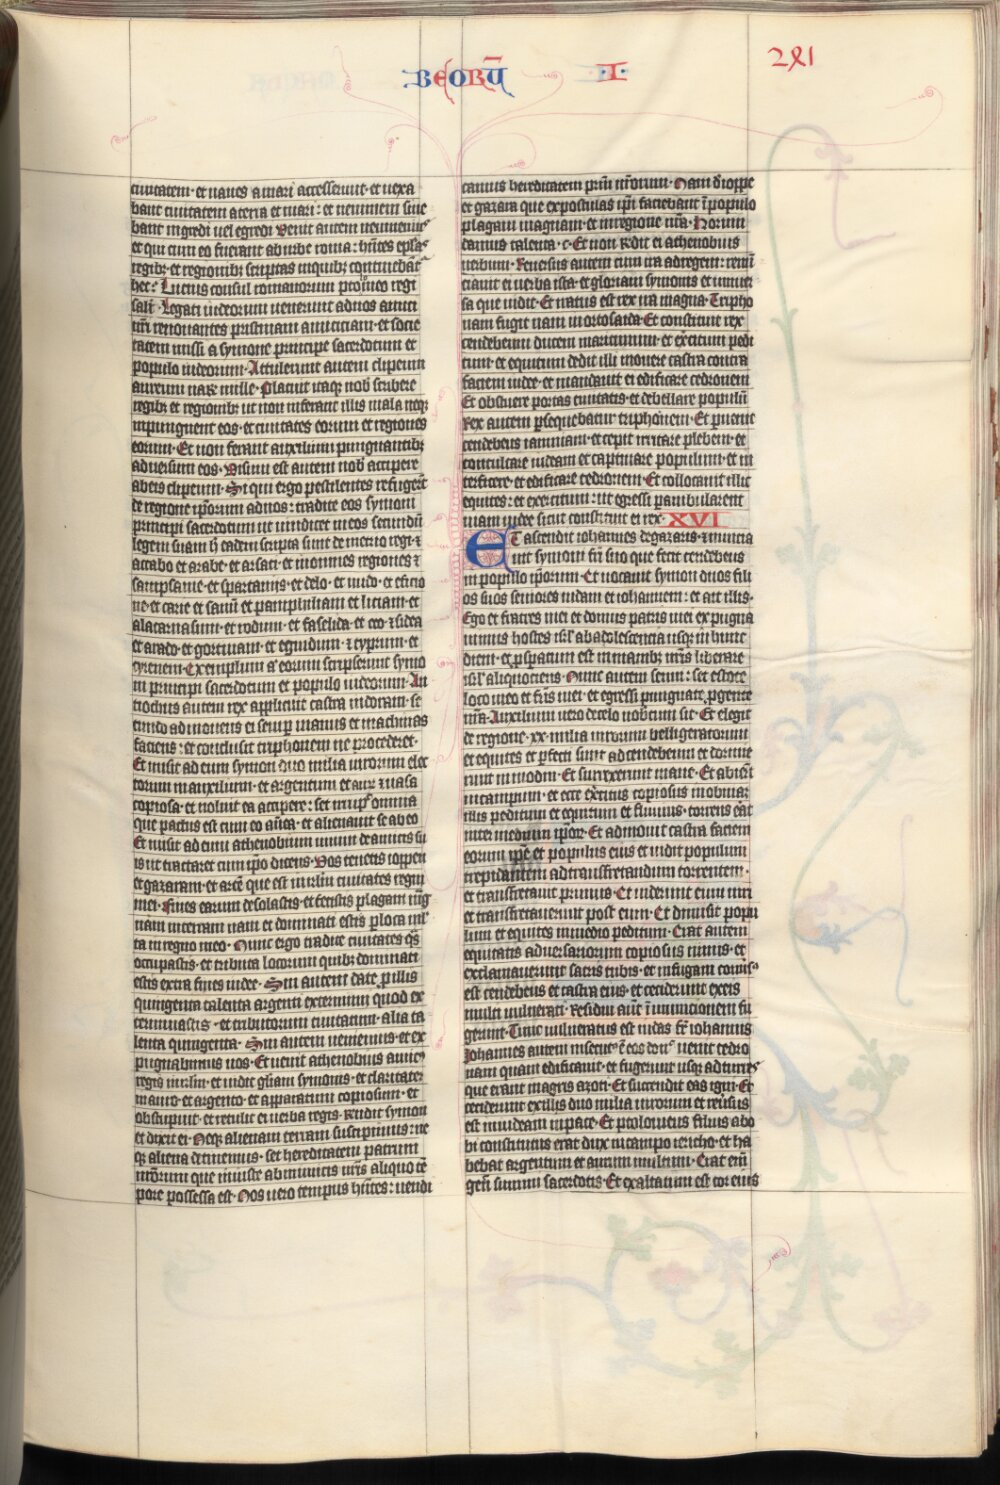 BEORṼ I
ciuitatem· et naues a mari accesserunt· et uexa
bant ciuitatem a terra et mari: et neminem sine
bant ingredi uel egredi Venit autem
et qui cum eo fuerant ab urbe roma: hñtes
regibꝫ et regionibꝫ scriptas in quibꝫ continebãt
hec: Lucius consul romanorum regi
Legati iudeorum uenerunt ad nos amici
nr̃i renouantes pristinam amiciciam· et socie
tatem missi a symone principe sacerdotum et
populo iudeorum· Attulerunt autem clipeum
aureum mille· Placuit itaqꝫ nob̃ scribere
regibꝫ et regionibꝫ ut non inferant illis mala neqꝫ
inpungnent eos· et ciuitates eorum et regiones
eorum· Et non ferant auxilium pungnantibꝫ
aduersum eos· Visum est autem nob̃ accipere
ab eis clipeum· Si qui ergo pestilentes
de regione ip̃orum ad nos: tradite eos symoni
principi sacerdotum ut uindicet in eos secundũ
legem suam hec eadem scripta sunt demetrio regi ⁊
attabo et arabe· et arsaci· et in omnes regiones ⁊
sampsame· et spartanis· et delo· et mido· et
ne· et carie et samũ et pamphiliam et liciam· et
alacarnasum· et rodum· et faselida· et coo ⁊ sida
et arado· et gortinam· et egnidum· ⁊ cyprum· et
cyrenem· Exemplum a eorum scripserunt symo
ni principi sacerdotum et populo iudeorum· An
tiochus autem rex applicuit castra in doram· se
cundo admouens ei semper manus et machinas
faciens: et conclusit tryphonem ne procederet·
Et misit ad eum symon duo milia uirorum elec
torum in auxilium· et argentum et aur̃ ⁊ uasa
copiosa· et noluit ea accipere: set omnia
que pactus est cum eo ãn̄ea· et alienauit se ab eo
Et misit ad eum athenobium unum de amicis su
is ut tractaret cum ip̃o dicens· Vos tenetis ioppen
et gazaram· et arcẽ que est in ierl̃m ciuitates regni
mei· Fines earum desolastis· et fecistis plagam mag̃
nam in terram nam et dominati estis p̱ loca ml̃
ta in regno meo· Nunc ergo tradite ciuitates q̃s
occupastis· et tributa locorum quibꝫ dominati
estis extra fines iudee· Sin autem date p̱ illis
quingenta talenta argenti exterminii quod ex
terminastis· et tributorum ciuitatum· alia ta
lenta quingenta· Sin autem ueniemus· et ex
pugnabimus uos· Et uenit athenobius amic᷒
regis in ierl̃m· et uidit gl̃iam symonis· et claritatẽ
in auro· et argento· et apparatum copiosum· et
obstupuit· et retulit ei uerba regis· Rñdit symon
et dixit ei· Neqꝫ alienam terram sumpsimus: ne
qꝫ aliena detinemus· set hereditatem patrum
nr̃orum que iniuste ab inimicis nr̃is aliquo tẽ
pore possessa est· Nos uero tempus hñtes: uendi
camus hereditatem pr̃m nr̃orum· Nam de ioppe
et gazara que expostulas ip̃i faciebant ĩ populo
plagam magnam· et in regione nr̃a· Horum
damus talenta ·c· Et non rñdit ei athenobius
uerbum· Reuersus autem cum ira ad regem: renũ
ciauit ei uerba ista· et gloriam symonis et uniuer
sa que uidit· Et iratus est rex ira magna· Tripho
nam fugit naui in ortosaida· Et constituit rex
cendebeum ducem maritimum· et ex̃citum pedi
tum· et equitum dedit illi mouere castra contra
faciem iudee· et mandauit ei edificare cedronem
Et obstruere portas ciuitatis· et debellare populũ
Rex autem p̱sequebatur tryphonem· Et puenit
cendebeus iamniam· et cepit irritare plebem· et
conculcare iudeam et captiuare populum· et in
terficere· et edificare cedronem· Et collocauit illic
equites: et exercitum: ut egressi pambularent
uiam iudee sicut constituit ei rex· XVI
ET ascendit iohannes de gazaris· ⁊ nuncia
uit symoni pr̃i suo que fecit cendebeus
in populo ip̃orum· Et uocauit symon duos fili
os suos seniores iudam et iohannem: et ait illis·
Ego et fratres mei et domus patris mei expugna
uimus hostes isr̃l ab adolescentia usqꝫ in hunc
diem· et p̱speratum est in manibꝫ nr̃is liberare
isr̃l aliquociens· Nunc autem senui: set estote
loco meo et fr̃is mei· et egressi pungnate p̱ gente
nr̃a· Auxilium uero de celo uobiscum sit· Et elegit
de regione ·xx· milia uirorum belligeratorum
et equites· et p̱fecti sunt ad cendebeum et dormie
runt in modin· Et surrexerunt mane· Et abier̃t
in campum· et ecce ex̃citus copiosus in obuiaꝫ
illis peditum et equitum et fluuius· torrens er̃at
inter medium ip̃oꝝ· Et admouit castra faciem
eorum ip̃e et populus eius et uidit populum
trepidantem ad transfretandum torrentem·
et transfretauit primus· Et uiderunt eum uiri
et transfretauerunt post eum· Et diuisit popu
lum et equites in medio peditum· Erat autem
equitatus aduersariorum copiosus nimis· et
exclamauerunt sacris tubis· et in fugam
est cendebeus et castra eius· et ceciderunt ex eis
multi uulnerati· Residui aut̃ ĩ municionem fu
gerunt· Tunc uulneratus est iudas fr̃ iohannis
Iohannes autem eos uenit cedro
nam quam edificauit· et fugerunt usqꝫ ad turres
que erant in agris azoti· Et succendit eas igni· Et
ceciderunt ex illis duo milia uirorum et reuersus
est in iudeam in pace· Et ptolomeus filius abo
bi constitutus erat dux in campo iericho· et ha
bebat argentum et aurum multum· Erat enĩ
gen̄ summi sacerdotis· Et exaltatum est cor eius